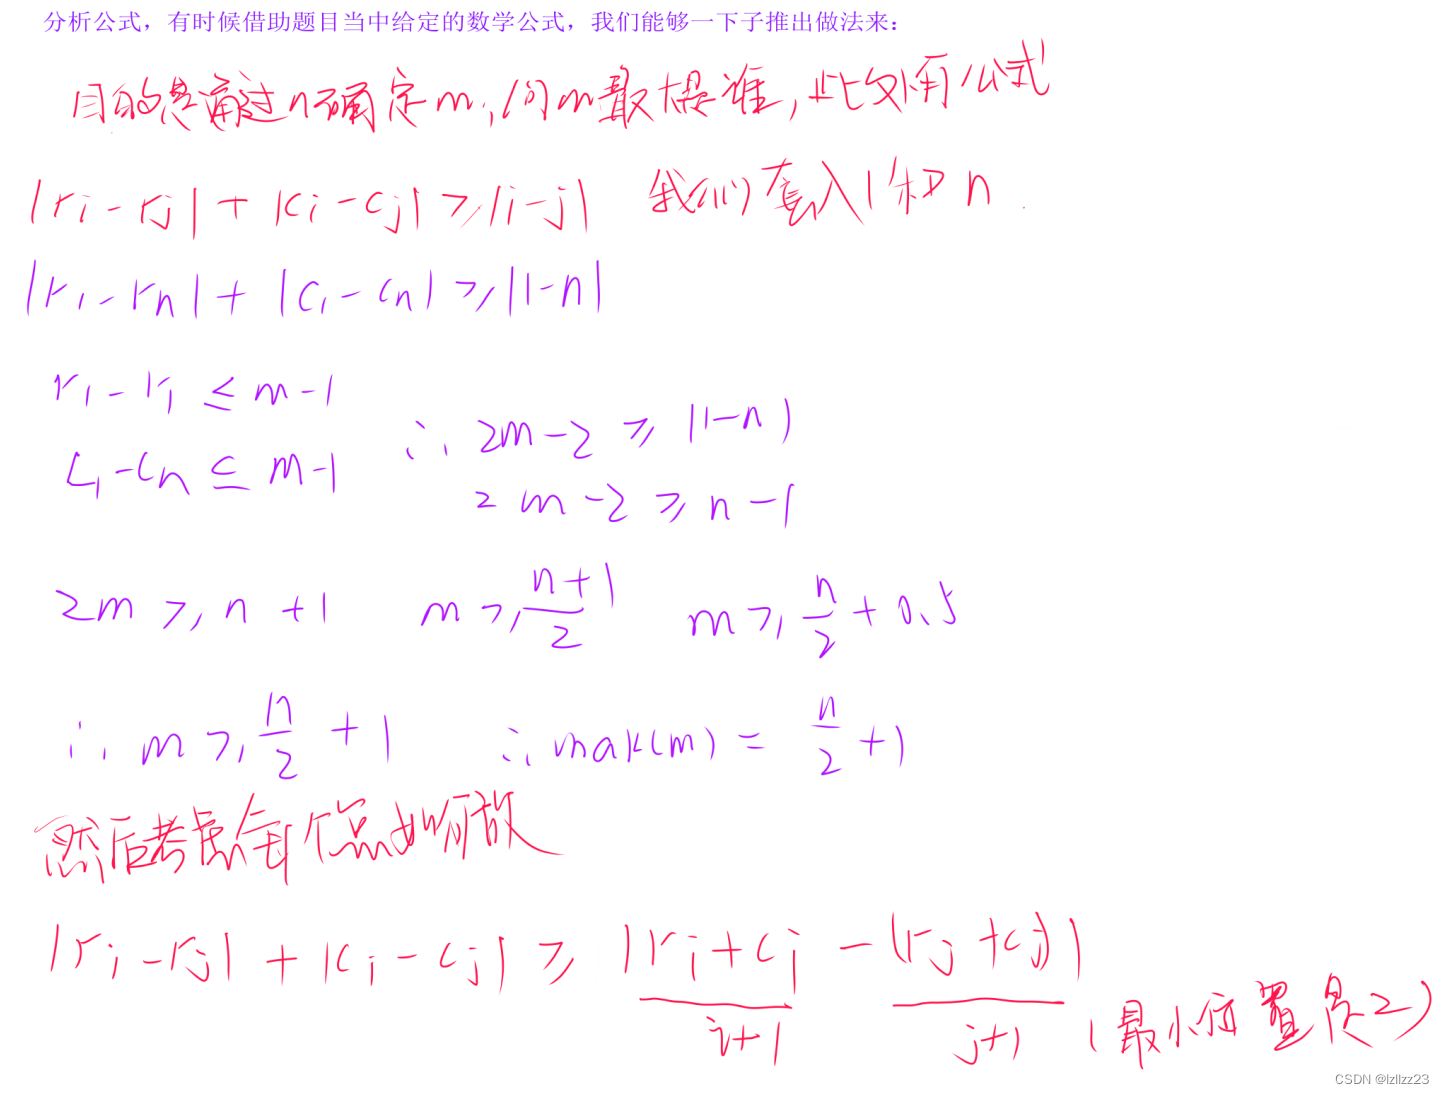 分析公式，有时候借助题目当中给定的数学公式，我们能够一下子推出做法来：
目的是通过n确定m，问m最大是谁，此处用公式
|ri-rj|+|ci-cj|≥|i-j| 我们套入1和n.
|r1-rn|+|c1-cn|≥|1-n|
r1-r1≤m-1
c1-cn≤m-1
∴2m-2≥|1-n|
2m-2≥n-1
2m≥n+1 m≥(n+1)/2 m≥n/2+0.5
∴m≥n/2+1 ∴max(m)=n/2+1
然后考虑每个点如何放
|ri-rj|+|ci-cj|≥|ri+ci-(rj+cj)|
i+1 j+1 (最小位置是2)
CSDN @lzllzz23